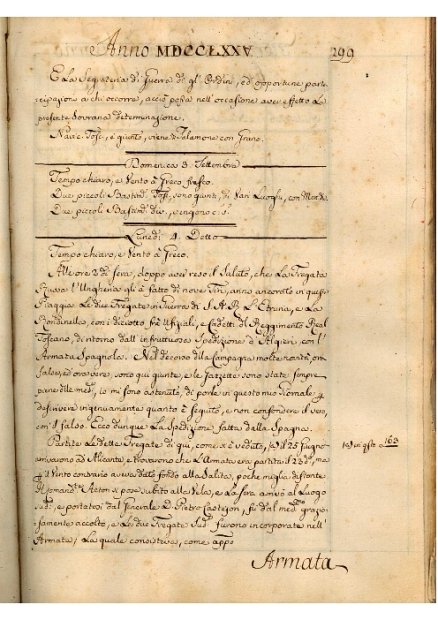 Anno MDCCLXXV
299
E la Segreteria di Guerra dj gl'Ordini, ed opportune parte-
cipazioni a chi occorra, acciò possa nell'occasione aver effetto la
presente Sovrana determinazione.
Nave Tosc., è giunto, viene di Talamone con Grano.
Domenica 3. Settembre
Tempo chiaro, e Vento à Greco fresco.
Due piccoli Bastim. Tosc. sono giunti, di Vari Luoghi, con
Due piccoli Bastim. vengono c. s.
Lunedì 4. Detto
Tempo chiaro, e Vento à Greco.
All'ore 3 di sera, doppo aver reso il saluto, che la Fregata
Russa l'Ungheria gli à fatto di nove Tiri, anno ancorato in questa
Piaggia le due Fregate in Guerra di S. A. R. l'Etruria, e la
Rondinella, con i diciotto fra Ufiziali, e Cadetti di Reggimento Real
Toscano, di ritorno dall'infruttuosa Spedizione d'Algieri, con l'
Armata Spagnola. Nel decorso della Campagna molte varie, or
false, ed ora vere, sono qui giunte, e le Gazzette sono state sempre
piene delle med., io mi sono astenuto, di porle in questo mio Giornale per
descrivere ingenuamente quanto è seguito, e non confondere il vero,
con il falso. Ecco dunque la Spedizione fatta dalla Spagna.
Partite le dette Fregate di qui, come si è veduto, (a) il 25 Giugno
(a) in questo a 163
arrivarono ad Alicante, e trovarono che l'Armata era partita il 23 d., ma
il Vento contrario aveva dato fondo alla Salita, poche miglia distante
Il Comand. Acton si pose subito alla Vela, e la sera arrivò al Luogo
sud., e portatosi dal Generale D. Pietro Castejon, fù dal med. grazio-
samente accolto, e le due Fregate sud. furono incorporate nell'
Armata; La quale consisteva, come app.
Armata